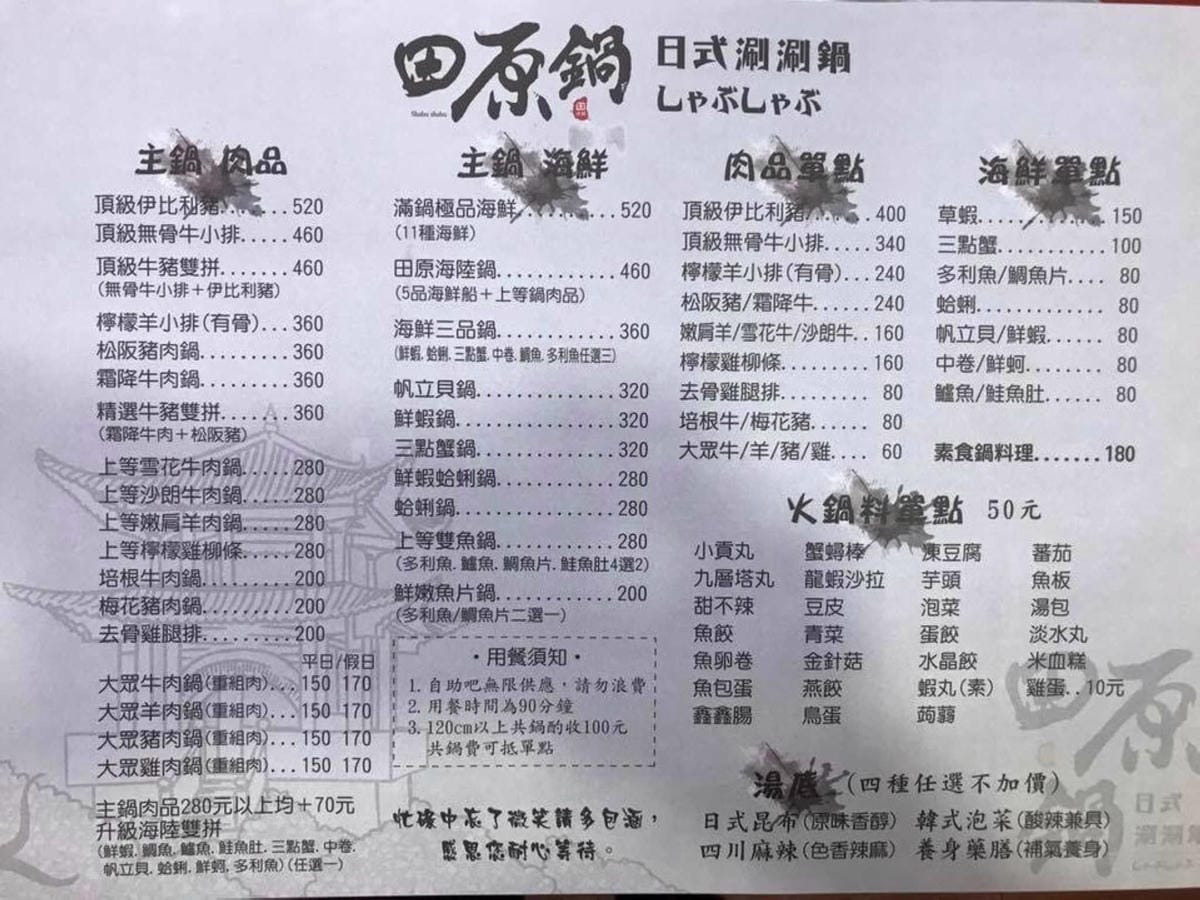 田原鍋
Shabu shabu
日式涮涮鍋
しゃぶしゃぶ
主鍋 肉品
頂級伊比利豬.......520
頂級無骨牛小排.....460
頂級牛豬雙拼.......460
(無骨牛小排＋伊比利豬)
檸檬羊小排(有骨)...360
松阪豬肉鍋.........360
霜降牛肉鍋.........360
精選牛豬雙拼.......360
(霜降牛肉＋松阪豬)
上等雪花牛肉鍋.....280
上等沙朗牛肉鍋.....280
上等嫩肩羊肉鍋.....280
上等檸檬雞柳條.....280
培根牛肉鍋.........200
梅花豬肉鍋.........200
去骨雞腿排.........200
平日/假日
大眾牛肉鍋(重組肉)...150 170
大眾羊肉鍋(重組肉)...150 170
大眾豬肉鍋(重組肉)...150 170
大眾雞肉鍋(重組肉)...150 170
主鍋肉品280元以上均＋70元
升級海陸雙拼
(鮮蝦.鯛魚.鱸魚.鮭魚肚.三點蟹.中卷.
帆立貝.蛤蜊.鮮蚵.多利魚)(任選一)
主鍋 海鮮
滿鍋極品海鮮..........520
(11種海鮮)
田原海陸鍋............460
(5品海鮮船＋上等鍋肉品)
海鮮三品鍋............360
(鮮蝦.蛤蜊.三點蟹.中卷.鯛魚.多利魚任選三)
帆立貝鍋..............320
鮮蝦鍋................320
三點蟹鍋..............320
鮮蝦蛤蜊鍋............280
蛤蜊鍋................280
上等雙魚鍋............280
(多利魚.鱸魚.鯛魚片.鮭魚肚4選2)
鮮嫩魚片鍋............200
(多利魚/鯛魚片二選一)
・用餐須知・
1. 自助吧無限供應，請勿浪費
2. 用餐時間為90分鐘
3. 120cm以上共鍋酌收100元
共鍋費可抵單點
忙碌中忘了微笑請多包涵，
感恩您耐心等待。
肉品單點
頂級伊比利豬.......400
頂級無骨牛小排.....340
檸檬羊小排(有骨)...240
松阪豬/霜降牛......240
嫩肩羊/雪花牛/沙朗牛..160
檸檬雞柳條.........160
去骨雞腿排......... 80
培根牛/梅花豬...... 80
大眾牛/羊/豬/雞.... 60
海鮮單點
草蝦.............150
三點蟹...........100
多利魚/鯛魚片.... 80
蛤蜊............. 80
帆立貝/鮮蝦...... 80
中卷/鮮蚵........ 80
鱸魚/鮭魚肚...... 80
素食鍋料理.......180
火鍋料單點 50元
小貢丸 蟹蟳棒 凍豆腐 蕃茄
九層塔丸 龍蝦沙拉 芋頭 魚板
甜不辣 豆皮 泡菜 湯包
魚餃 青菜 蛋餃 淡水丸
魚卵卷 金針菇 水晶餃 米血糕
魚包蛋 燕餃 蝦丸(素) 雞蛋..10元
鑫鑫腸 鳥蛋 蒟蒻
湯底 (四種任選不加價)
日式昆布(原味香醇) 韓式泡菜(酸辣兼具)
四川麻辣(色香辣麻) 養身藥膳(補氣養身)
田原鍋
日式
涮涮